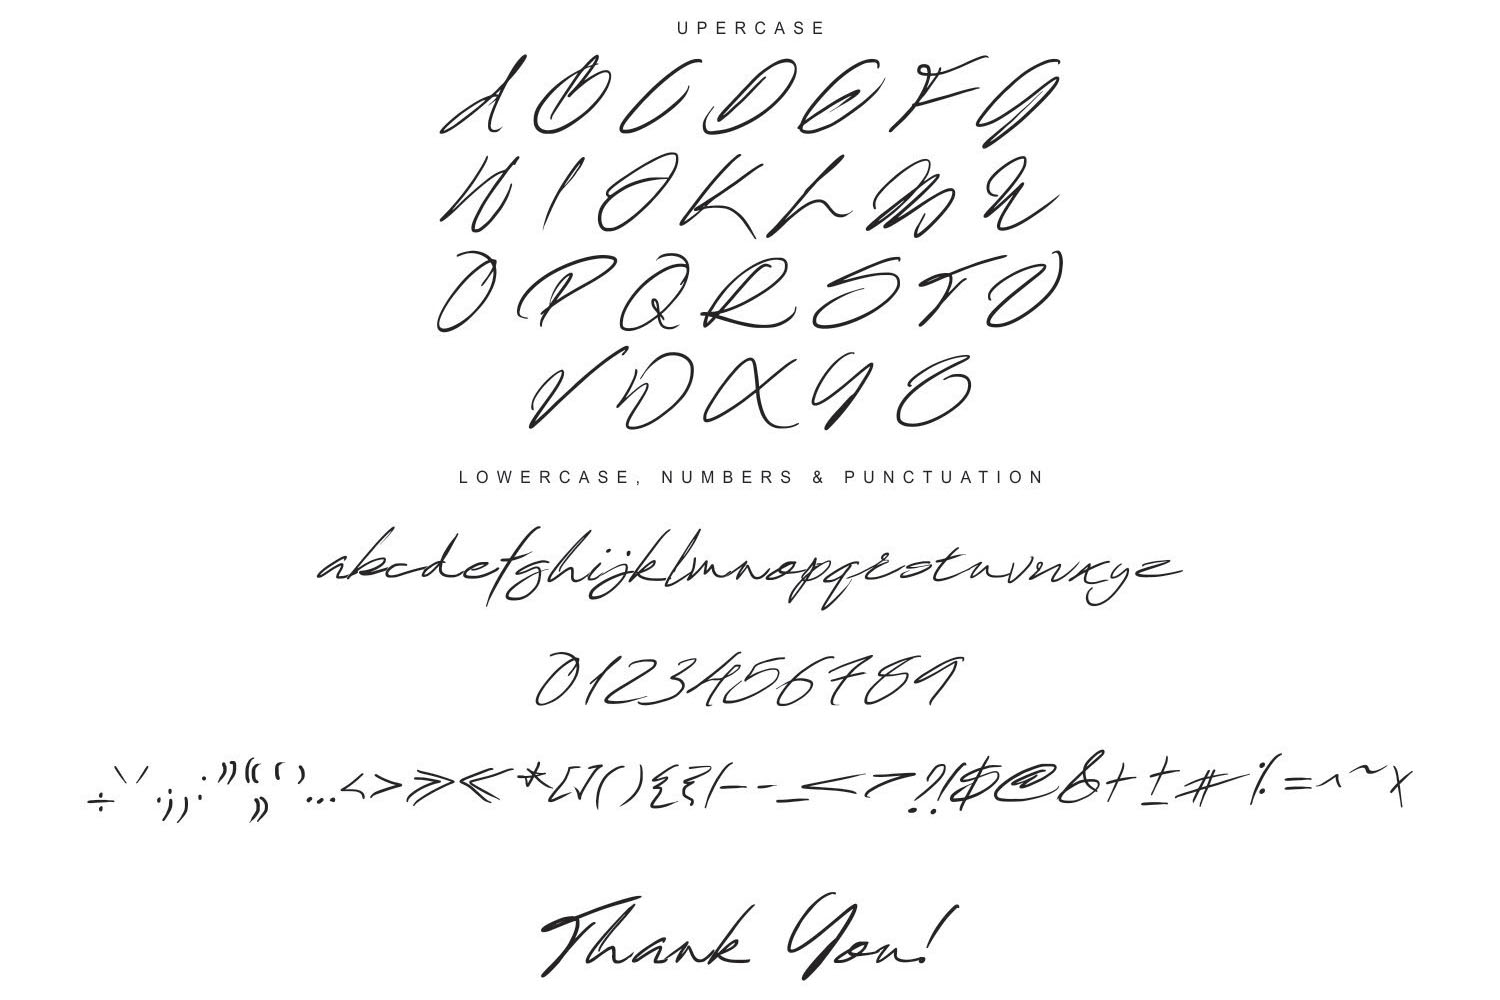 UPERCASE
A B C D E F G
H I J K L M N
O P Q R S T U
V W X Y Z
LOWERCASE, NUMBERS & PUNCTUATION
abcdefghijklmnopqrstuvwxyz
0123456789
÷ \ / . ; , : ” “ „ ‘ ’ … < > » « * [ ] ( ) { } / – - - _ < > ? ! $ @ & + ± # % = ^ ~ ×
Thank You!